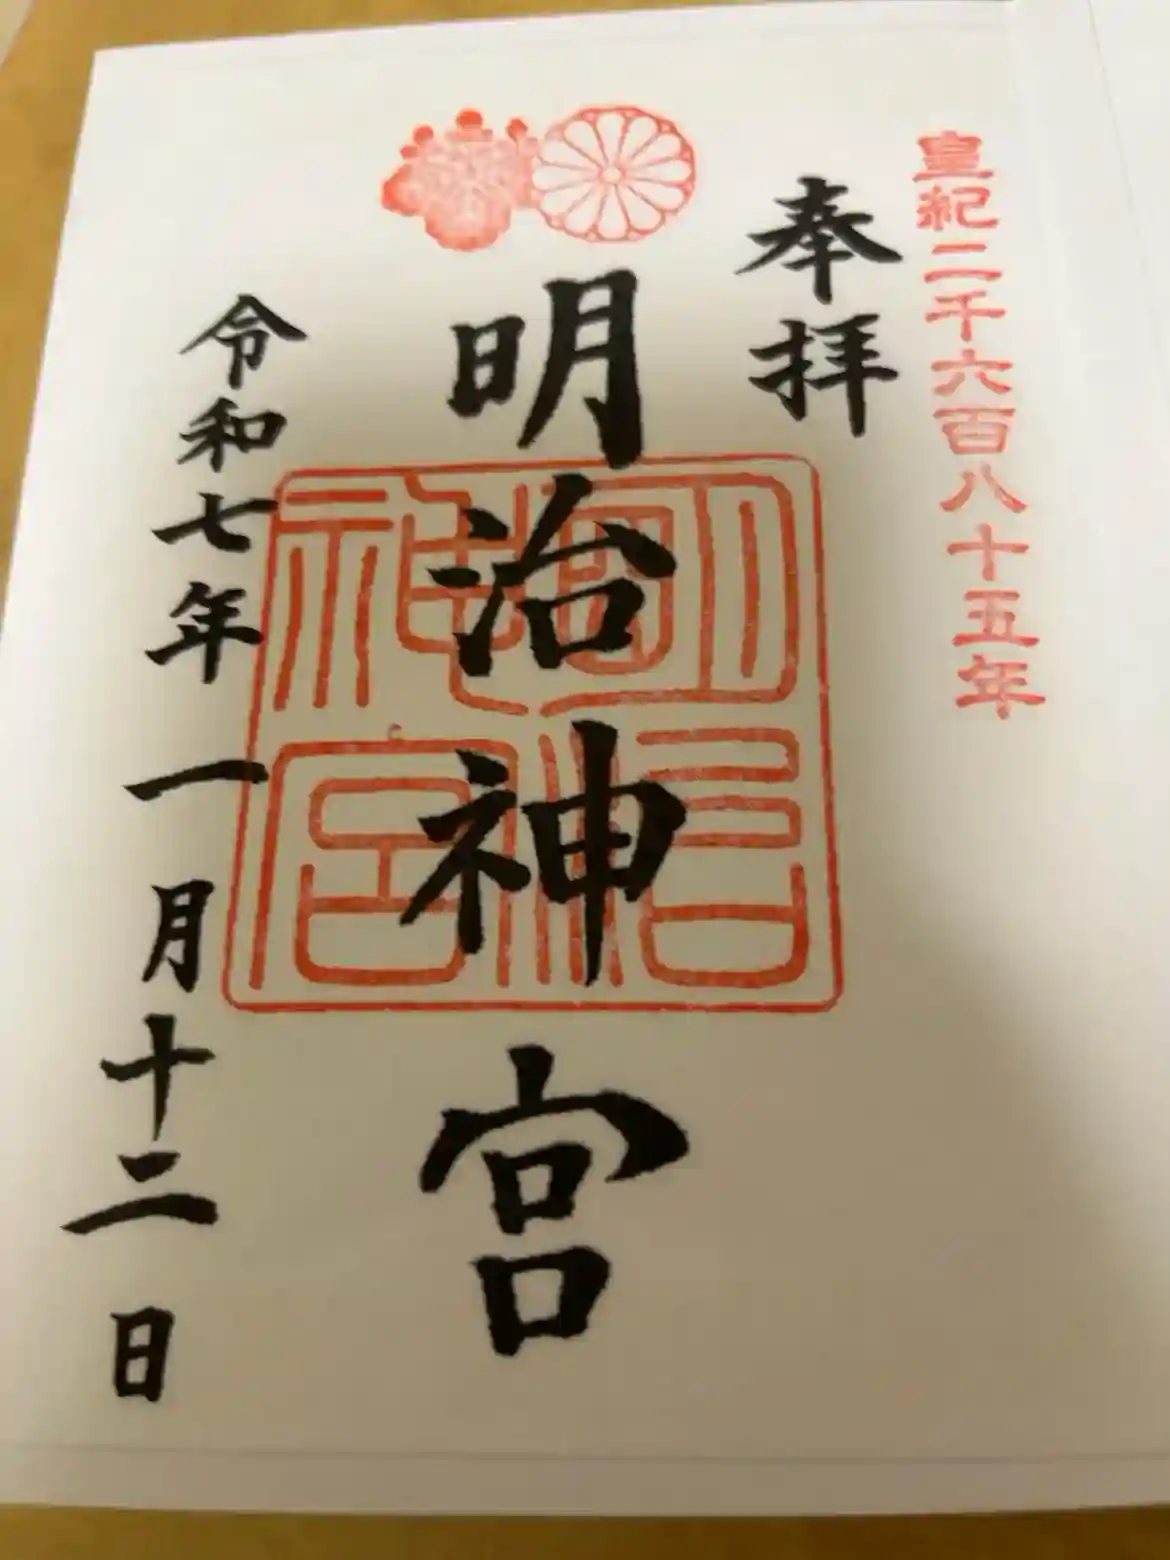 皇紀二千六百八十五年
奉拝
明治神宮
明治神宮
令和七年一月十二日